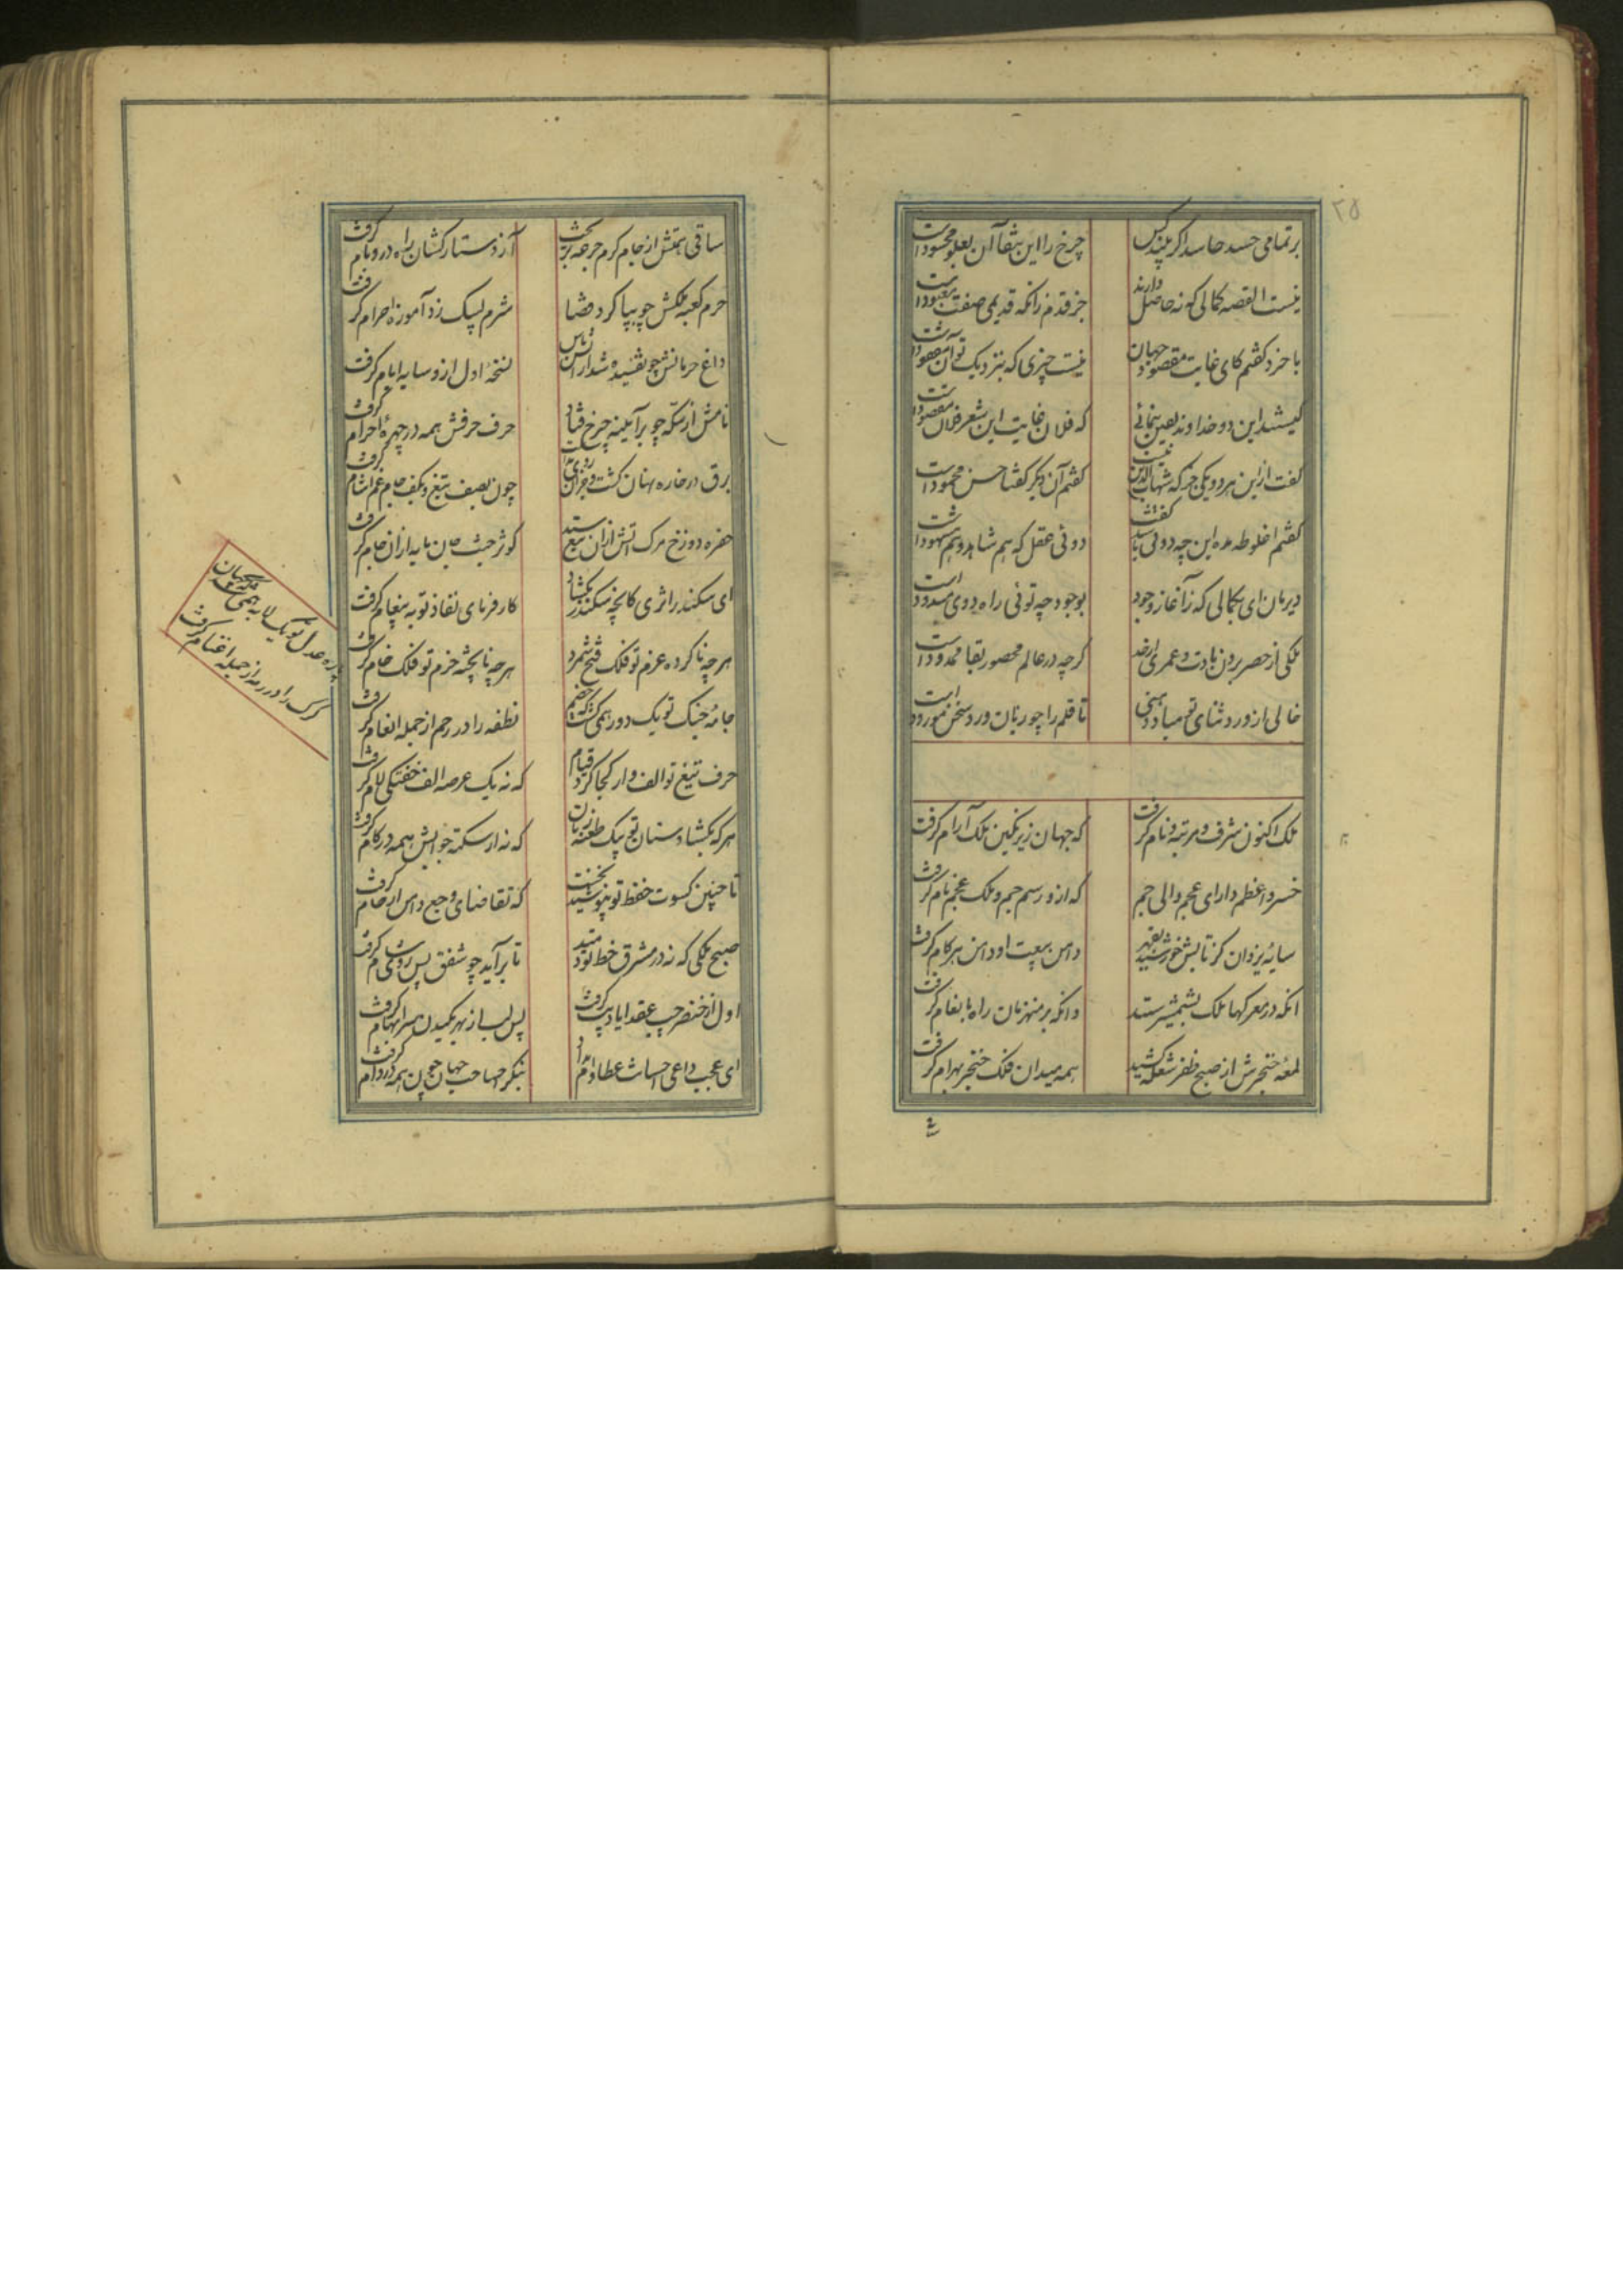 ۲۵
بر تمامی حسد حاسد اگر بیند کس
چرخ را این بشقا آن بعلو محسود است
نیست القصه کمالی که نه حاصل دارند
جز قدم زانکه قدیمی صفت معبود است
با خرد گفتم کای غایت مقصود جهان
نیست چیزی که بنزدیک تو آن مفقود است
کیستند این دو خداوند بتعیین بنمائی
که فلان غایت این شعر فلان مقصود است
گفت ازین هر دو یکی جز که شهاب الدین نیست
گفتم آن دیگر گفتا حسن محمود است
گفتم اغلوطه مده این چه دوئی باشد گفت
دوئی عقل که هم شاهد و هم مشهود است
دیرمان ای بکمالی که ز آغاز وجود
بوجود چه توئی راه دوی مسدود است
ملکی از حصر برون بادت و عمری از حد
گرچه در عالم محصور بقا محدود است
خالی از ورد ثنای تو مبادا سخنی
تا قلم را چو زبان ورد سخن مورود است
ملک اکنون شرف و مرتبه و نام گرفت
که جهان زیر نگین ملک آرام گرفت
خسرو اعظم دارای عجم والی جم
که ازو رسم جم و ملک عجم نام گرفت
سایه یزدان کز تابش خورشید بقهر
دامن بیعت او دامن هر کام گرفت
انکه در معرکها ملک بشمشیر ستد
وانکه بر منهزمان راه بانعام گرفت
لمعه خنجرش از صبح ظفر شعله کشید
همه میدان فلک خنجر بهرام گرفت
ساقی همتش از جام کرم جرعه بریخت
آز دستارکشان راه در و بام گرفت
حرم کعبه ملکش چو بپا کرد قضا
شرم لبیک زد آموزه احرام گرفت
داغ حرمانش چو تفسیده شد از آتش باس
نسخه اول ازو سایه ایام گرفت
نامش از سکه چو بر آئینه چرخ فتاد
حرف حرفش همه در چهره اجرام گرفت
برق در خاره نهان گشت
چون بصف تیغ و بکف جام غم انجام گرفت
حفره دوزخ مرگ آتش ازان تیغ ستد
کوثر جنت جان مایه ازان جام گرفت
ای سکندر اثری کانچه سکندر بگشاد
کارفرمای نفاذ تو به پیغام گرفت
هر چه ناکرده عزم تو فلک فتح شمرد
هر چه ناپخته حزم تو فلک خام گرفت
جامه جنگ تو یک دور همی گشت که خصم
نطفه را در رحم از جمله انعام گرفت
پاره عدل تو یک لابه همی کرد جهان
گرگ را در رمه از جمله اغنام گرفت
حرف تیغ تو الف وار کجا کرد قیام
که نه یک عرصه الف خفتگی لام گرفت
هر که بگشاد سنان تو بیک طعنه زبان
که نه از سکته جوابش همه در کام گرفت
تا جنین کسوت حفظ تو نپوشید نخست
که تقاضای وجع دامن ارحام گرفت
صبح ملکی که نه در مشرق حفظ تو دمید
تا برآید چو شفق پس روش شام گرفت
اول از خنصر چپ عقد ایادیت گرفت
پس لب از بهر مکیدن سر ابهام گرفت
ای عجب داعی احسانت عطا وام نداد
بنگر صاحب جهان چون همه در وام گرفت